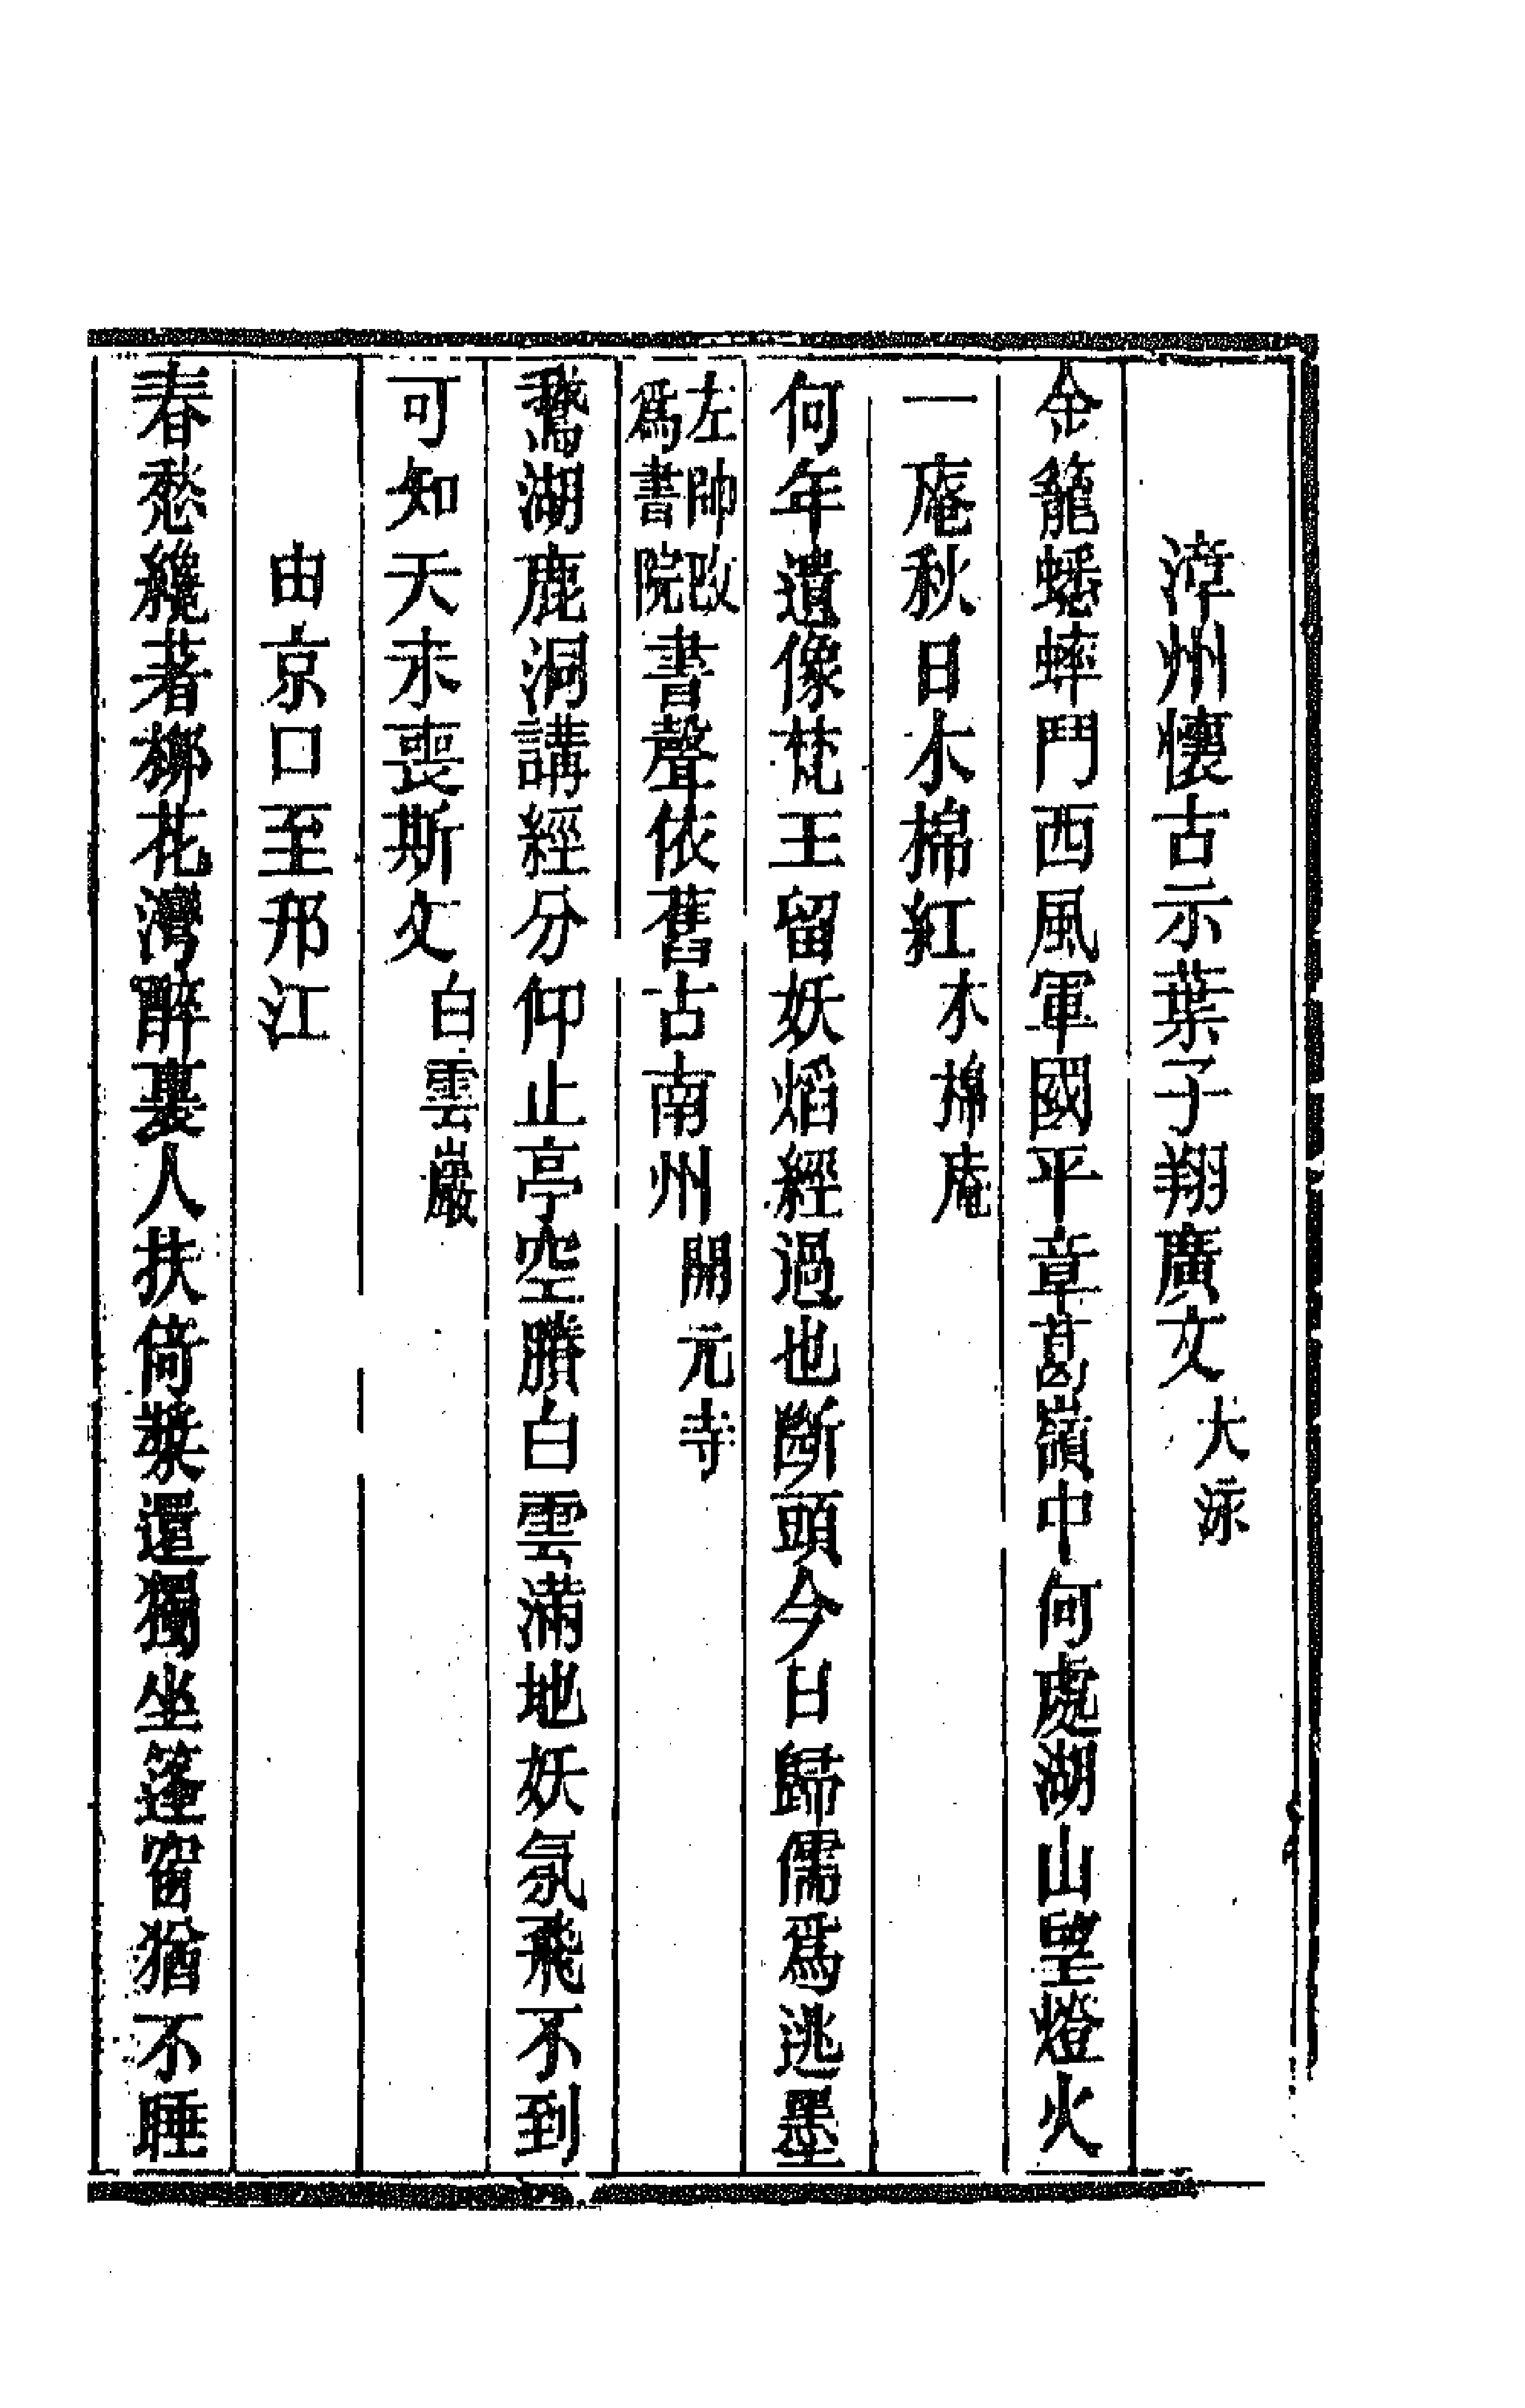 漳州懷古示葉子翔廣文大泳
金籠蟋蟀鬥西風軍國平章葛嶺中何處湖山望燈火
一庵秋日木棉紅木棉庵
何年遺像梵王留妖焰經過也斷頭今日歸儒爲逃墨
左帥改爲書院書聲依舊古南州開元寺
鵞湖鹿洞講經分仰止亭空賸白雲滿地妖氛飛不到
可知天未喪斯文白雲巖
由京口至邗江
春愁纔著柳花灣醉裏人扶倚槳還獨坐篷窗猶不睡